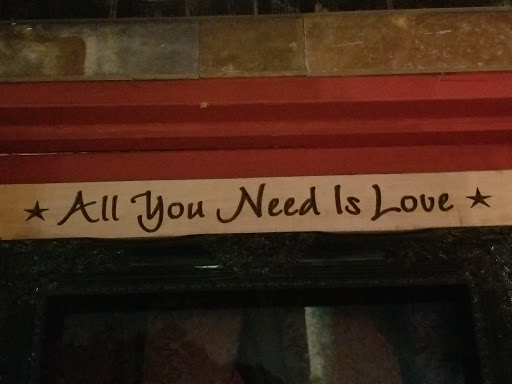 ★ All You Need Is Love ★